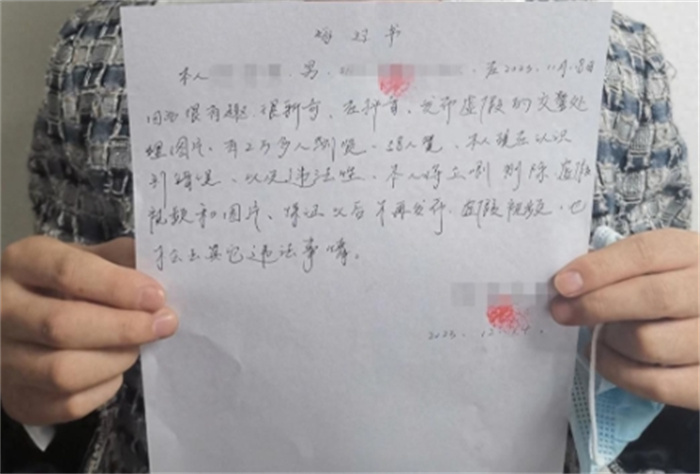 悔过书
本人 男, 在2023.11月.8日
因为很有趣, 很新奇, 在抖音, 发布虚假的交警处
理图片, 有2万多人浏览, 人赞, 本人现在认识
到错误, 以及违法性, 本人将立刻删除虚假
视频和图片, 保证以后不再发布, 虚假视频, 也
不会去其它违法事情。
2023. 12.